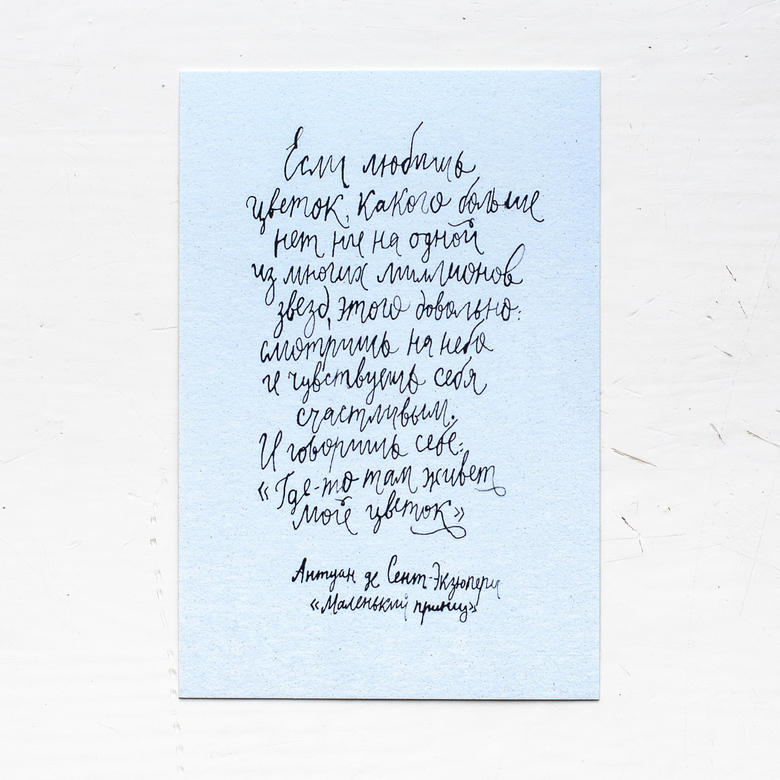 Если любишь
цветок, какого больше
нет ни на одной
из многих миллионов
звезд, этого довольно:
смотришь на небо
и чувствуешь себя
счастливым.
И говоришь себе:
«Где-то там живет
мой цветок»
Антуан де Сент-Экзюпери
«Маленький принц»